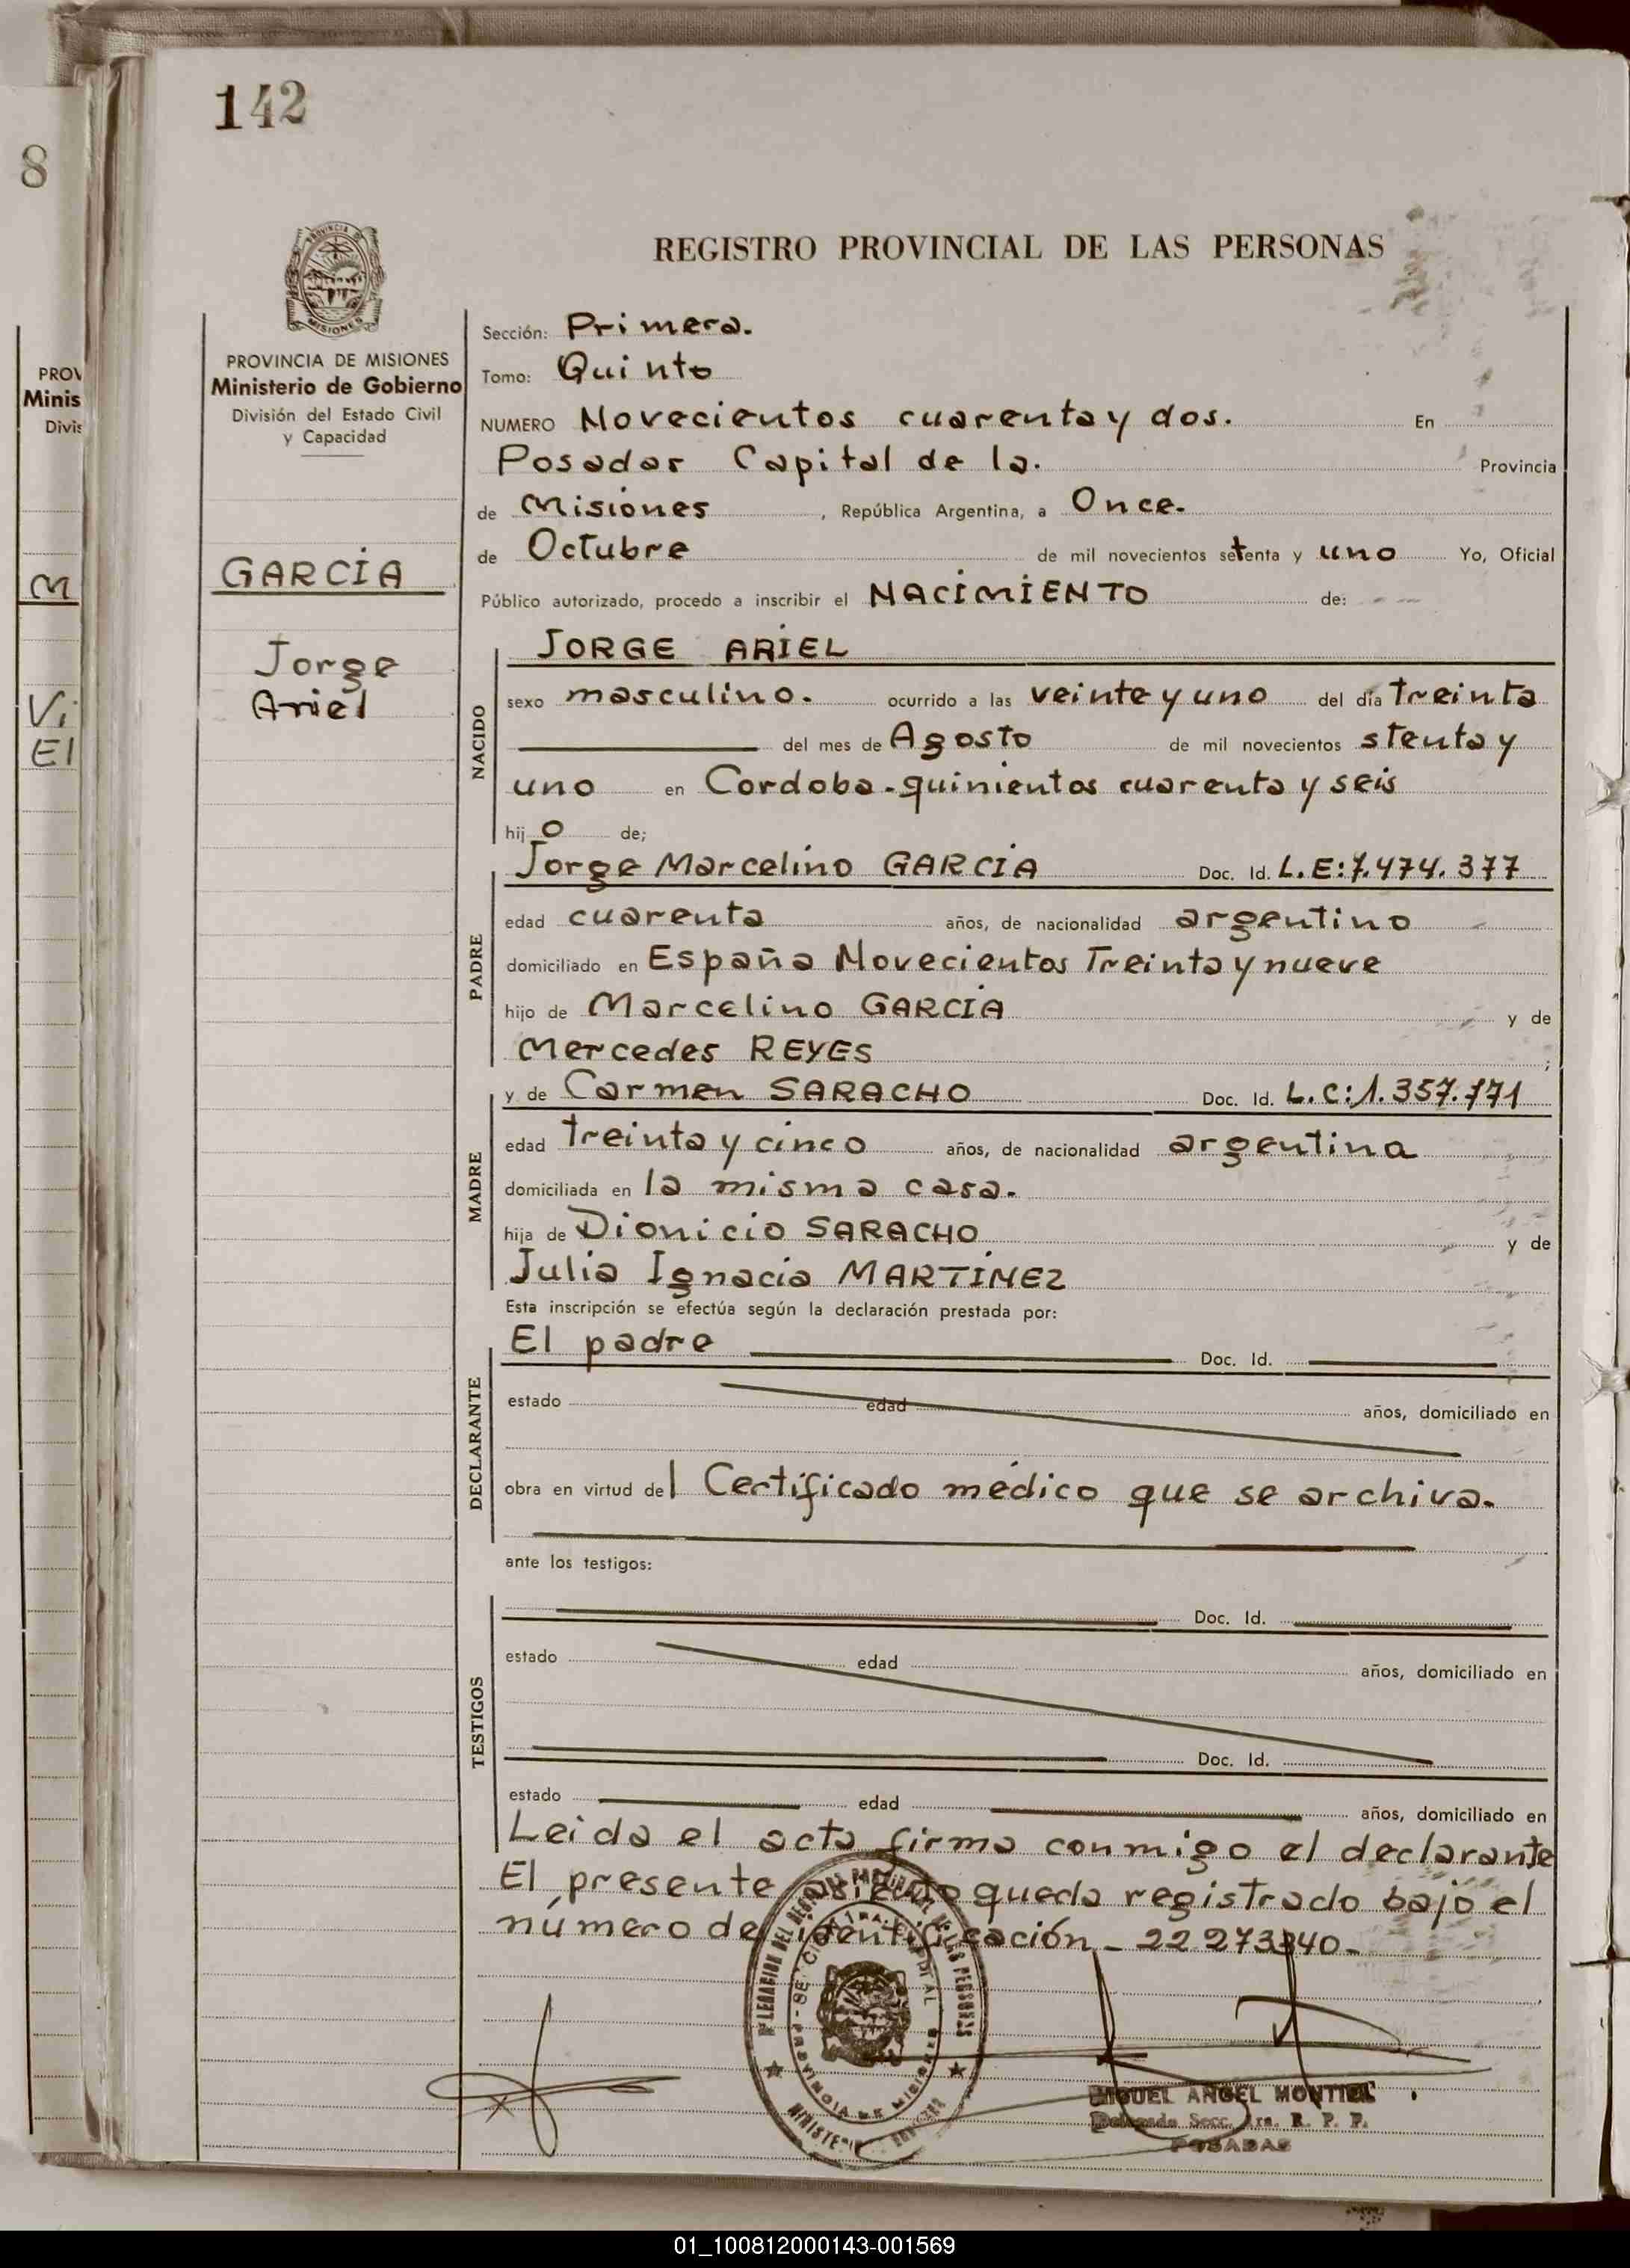 142
8
REGISTRO PROVINCIAL DE LAS PERSONAS
PROVINCIA DE MISIONES
Ministerio de Gobierno
División del Estado Civil
y Capacidad
PROV
Minis
Divis
M
Vi
El
GARCÍA
Jorge
Ariel
Sección: Primera.
Tomo: Quinto
NUMERO Novecientos cuarenta y dos. En
Posadas Capital de la. Provincia
de Misiones , República Argentina, a Once.
de Octubre de mil novecientos setenta y uno Yo, Oficial
Público autorizado, procedo a inscribir el NACIMIENTO de:
NACIDO
JORGE ARIEL
sexo masculino. ocurrido a las veinte y uno del día treinta
del mes de Agosto de mil novecientos stenta y
uno en Cordoba - quinientos cuarenta y seis
hijo de;
PADRE
Jorge Marcelino GARCÍA Doc. Id. L.E: 7.474.377
edad cuarenta años, de nacionalidad argentino
domiciliado en España Novecientos Treinta y nueve
hijo de Marcelino GARCÍA y de
Mercedes REYES ;
MADRE
y de Carmen SARACHO Doc. Id. L.C: 1.357.771
edad treinta y cinco años, de nacionalidad argentina
domiciliada en la misma casa.
hija de Dionicio SARACHO y de
Julia Ignacia MARTÍNEZ
Esta inscripción se efectúa según la declaración prestada por:
DECLARANTE
El padre Doc. Id.
estado edad años, domiciliado en
obra en virtud del Certificado médico que se archiva.
ante los testigos:
TESTIGOS
Doc. Id.
estado edad años, domiciliado en
Doc. Id.
estado edad años, domiciliado en
Leida el acta firma conmigo el declarante
El presente asiento queda registrado bajo el
número de identificación - 22 273340-
MIGUEL ANGEL MONTIEL
Delegado Secc. 1ra. R. P. P.
POSADAS
01_100812000143-001569